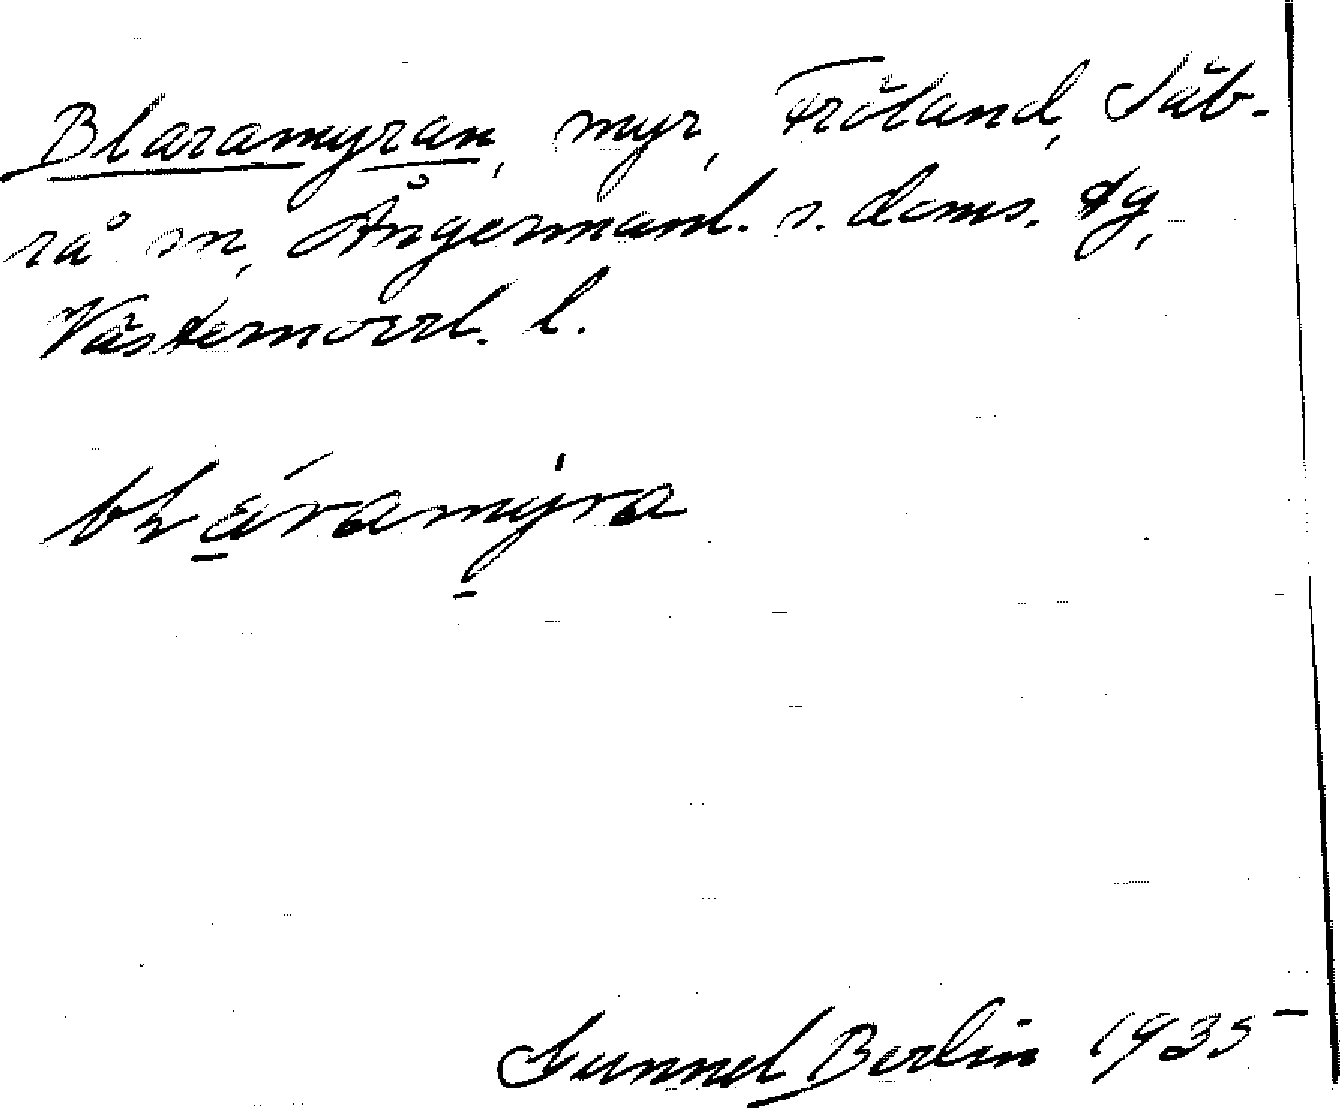 Blaramyran, myr, Fröland, Säb-
rå sn, Ångermanl. s. doms. tg,
Västernorrl. l.
Gunnel Berlin 1935